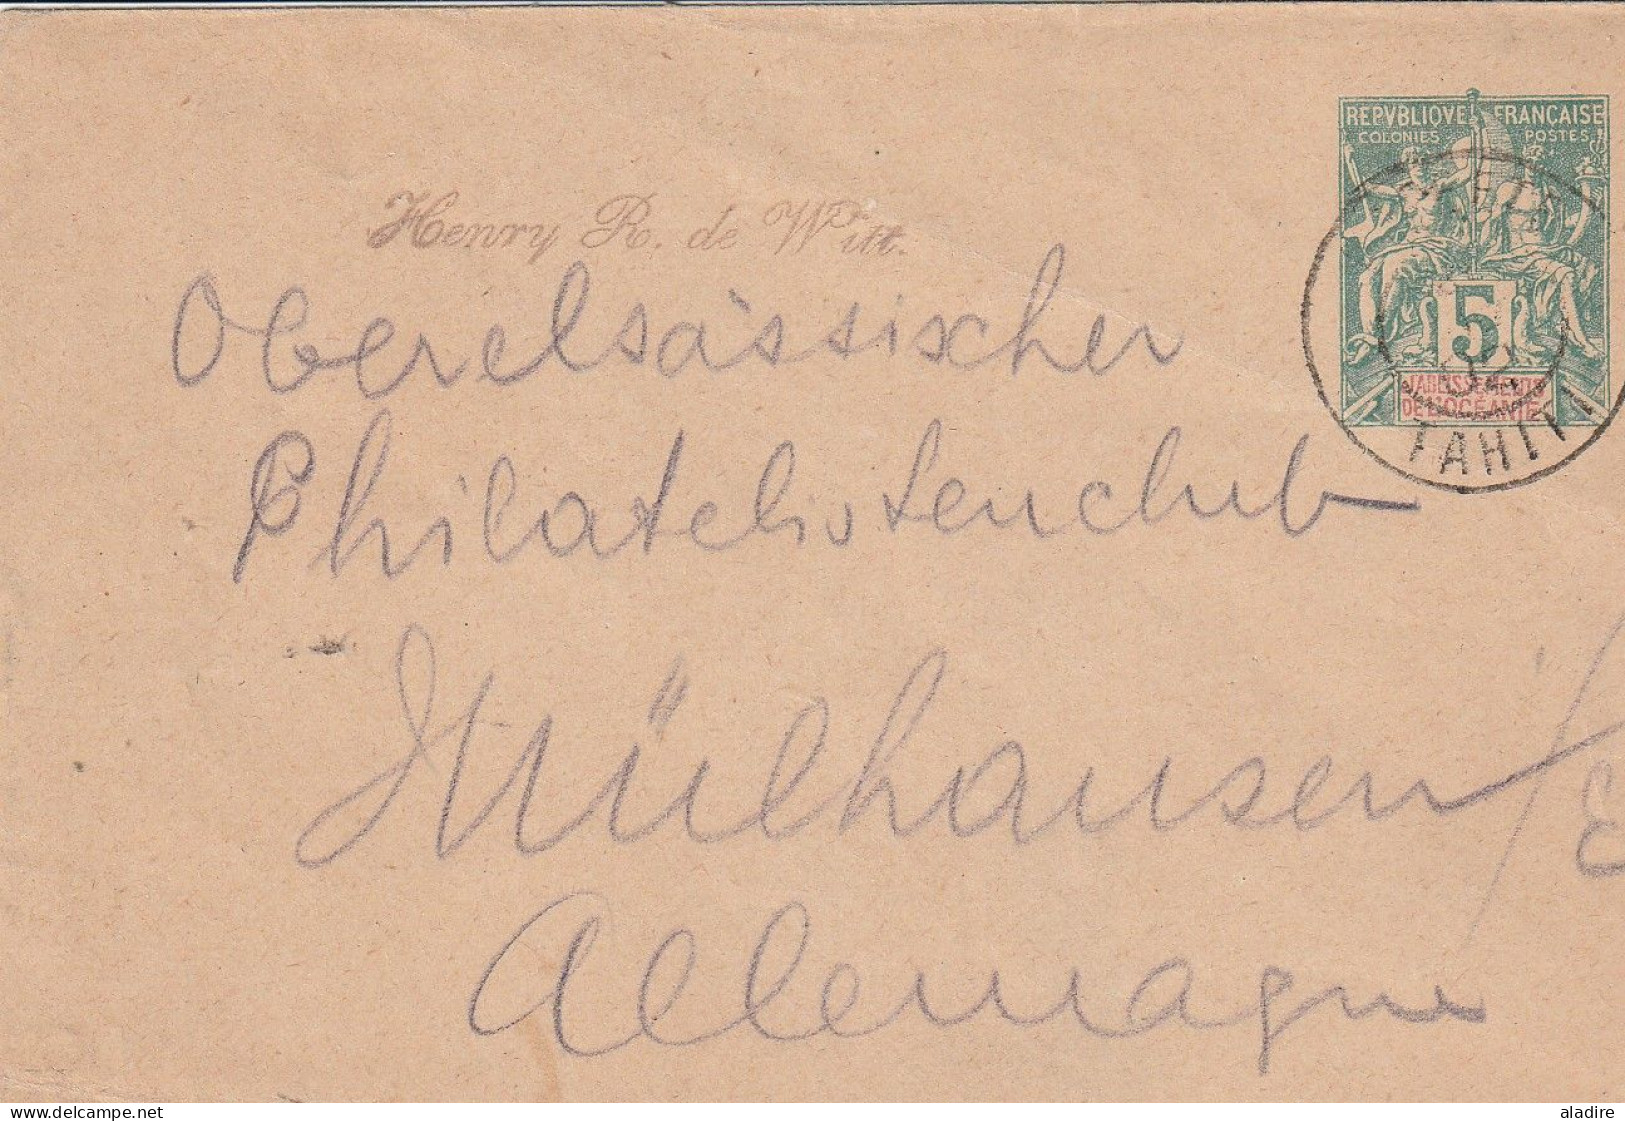 REPVBLIQVE FRANÇAISE
COLONIES POSTES
Henry R. de Witt.
5
TABLISSEMENTS
DE L'OCÉANIE
TAHITI
Oberelsässischer
Philatelistenclub
Mülhausen / E
Allemagne
delcampe.net
aladire